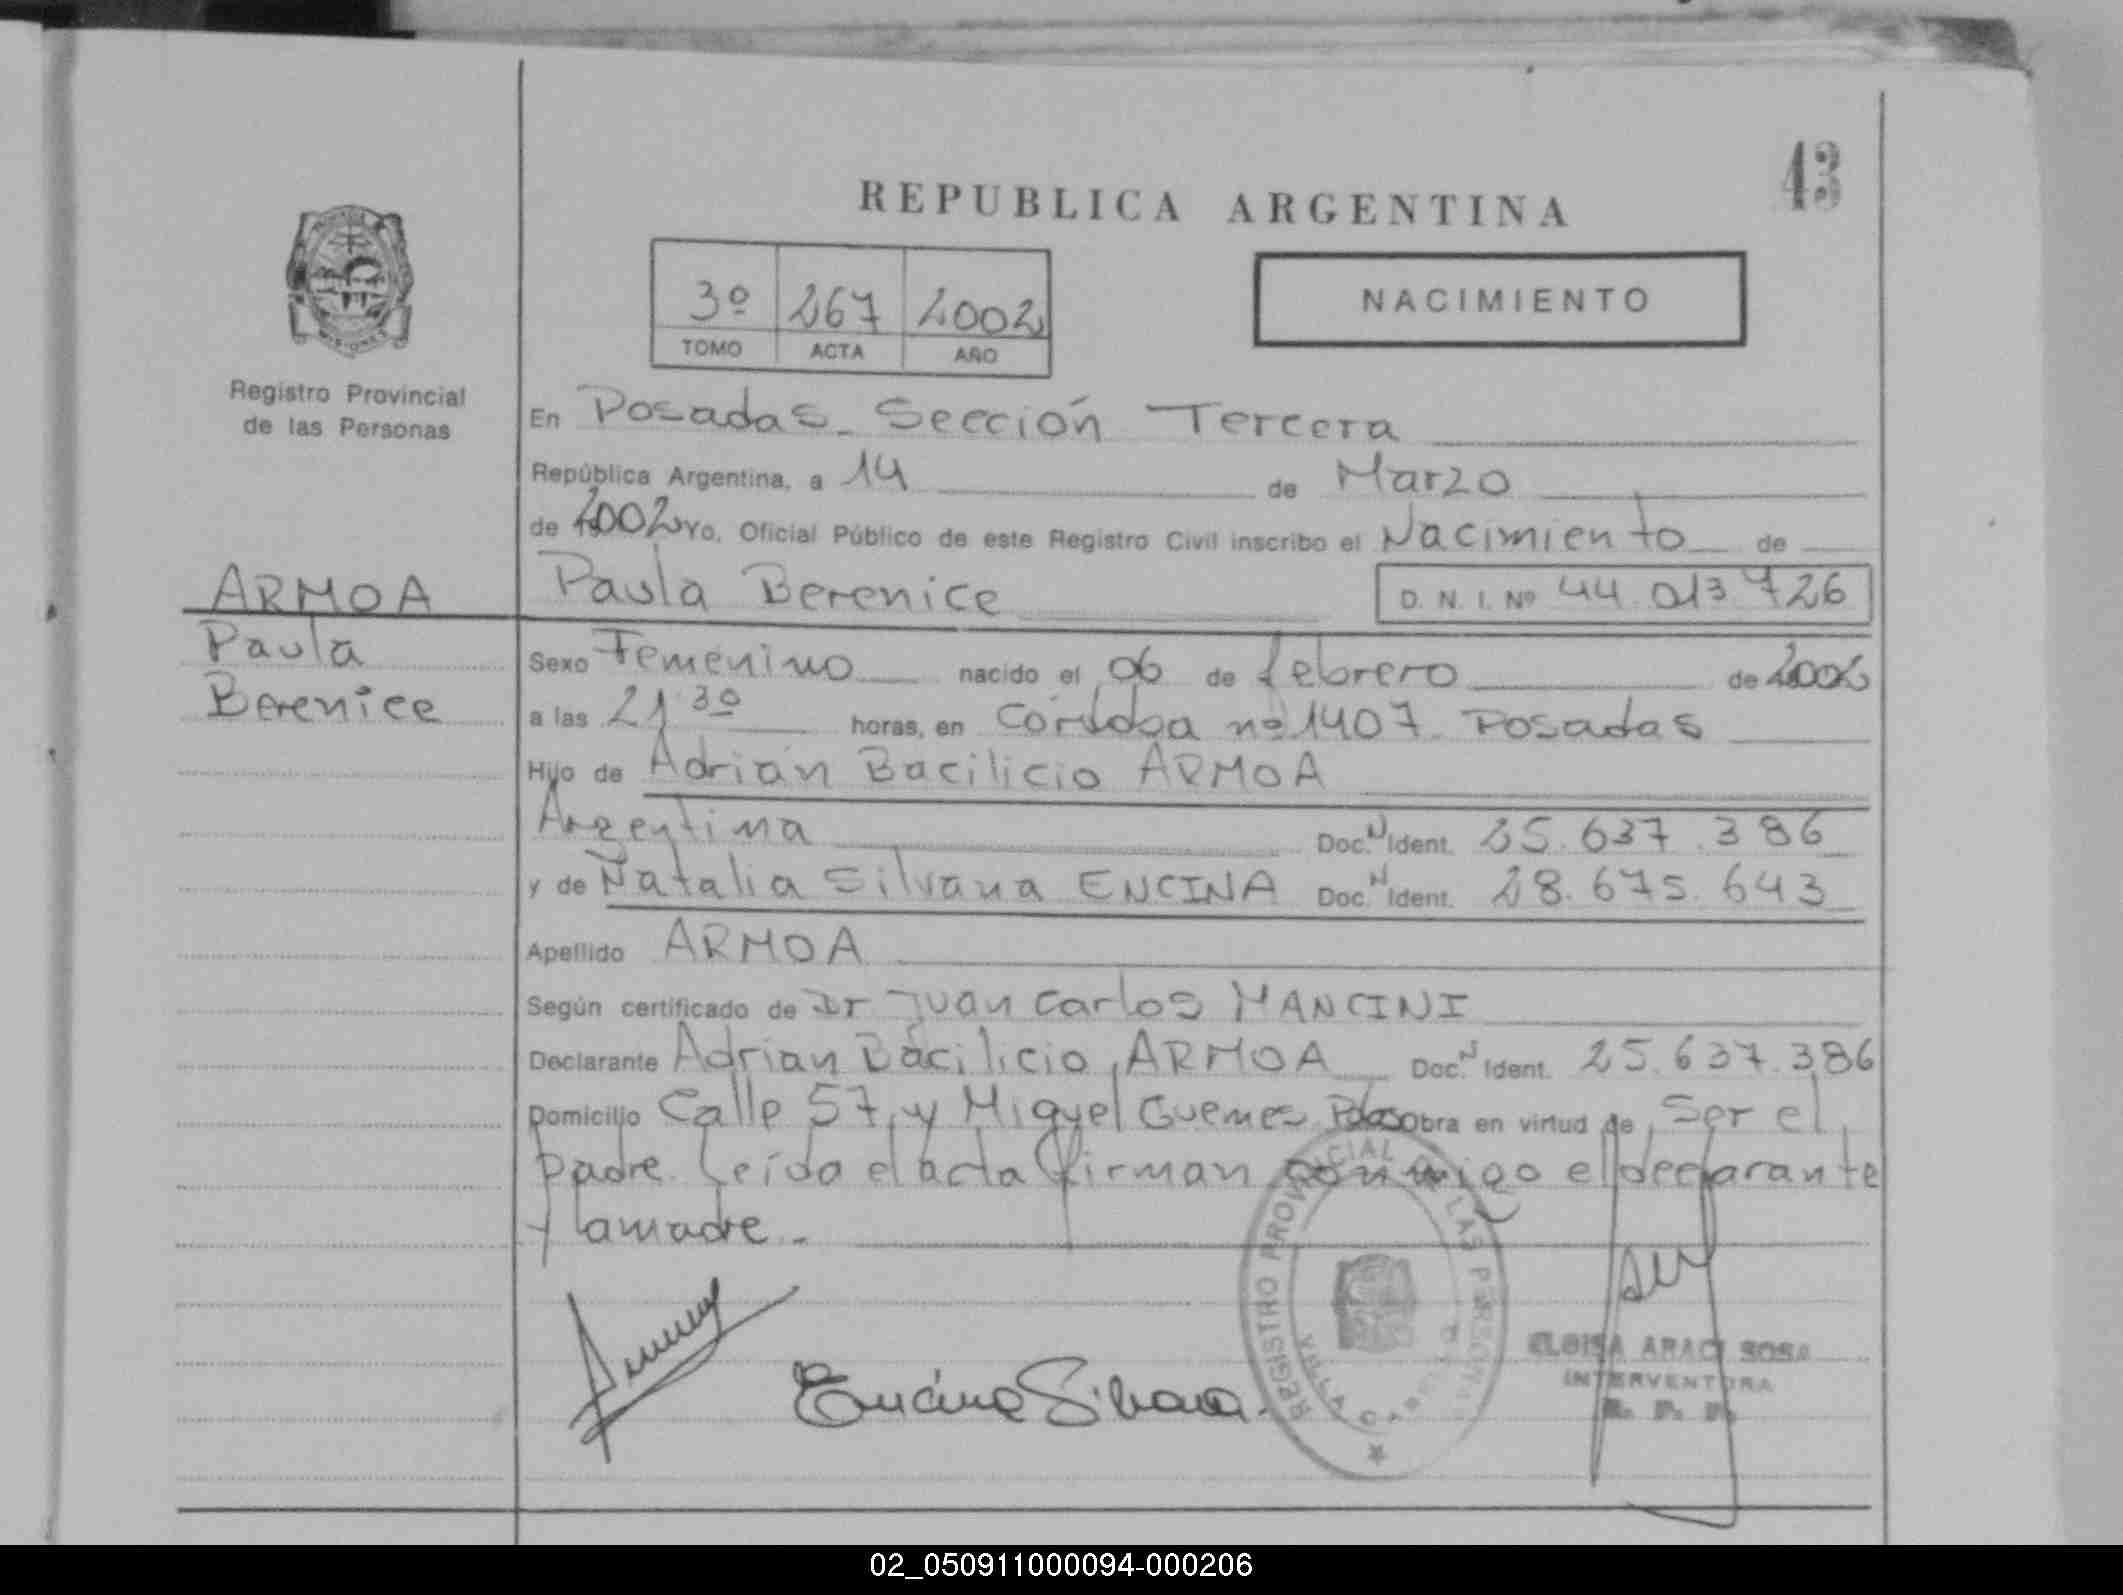 43
REPUBLICA ARGENTINA
3º 267 2002
TOMO ACTA AÑO
NACIMIENTO
MISIONES
Registro Provincial
de las Personas
En Posadas - Sección Tercera
República Argentina, a 14 de Marzo
de 2002 Yo, Oficial Público de este Registro Civil inscribo el Nacimiento de
ARMOA
Paula
Berenice
Paula Berenice D. N. I. Nº 44.013.726
Sexo Femenino nacido el 06 de febrero de 2002
a las 21 30 horas, en Córdoba nº 1407 Posadas
Hijo de Adrián Bacilicio ARMOA
Argentina Doc. N Ident. 25.637.386
y de Natalia Silvana ENCINA Doc. N Ident. 28.675.643
Apellido ARMOA
Según certificado de Dr Juan Carlos MANCINI
Declarante Adrian Bacilicio ARMOA Doc. N Ident. 25.637.386
Domicilio Calle 57 y Miguel Guemes Pdas Obra en virtud de Ser el
padre. Leída el acta firman conmigo el declarante
y la madre.-
Encina Silvana.
REGISTRO PROVINCIAL DE LAS PERSONAS
VILLA CABELLO
ELOISA ARACI SOSA
INTERVENTORA
R. P. P.
02_050911000094-000206